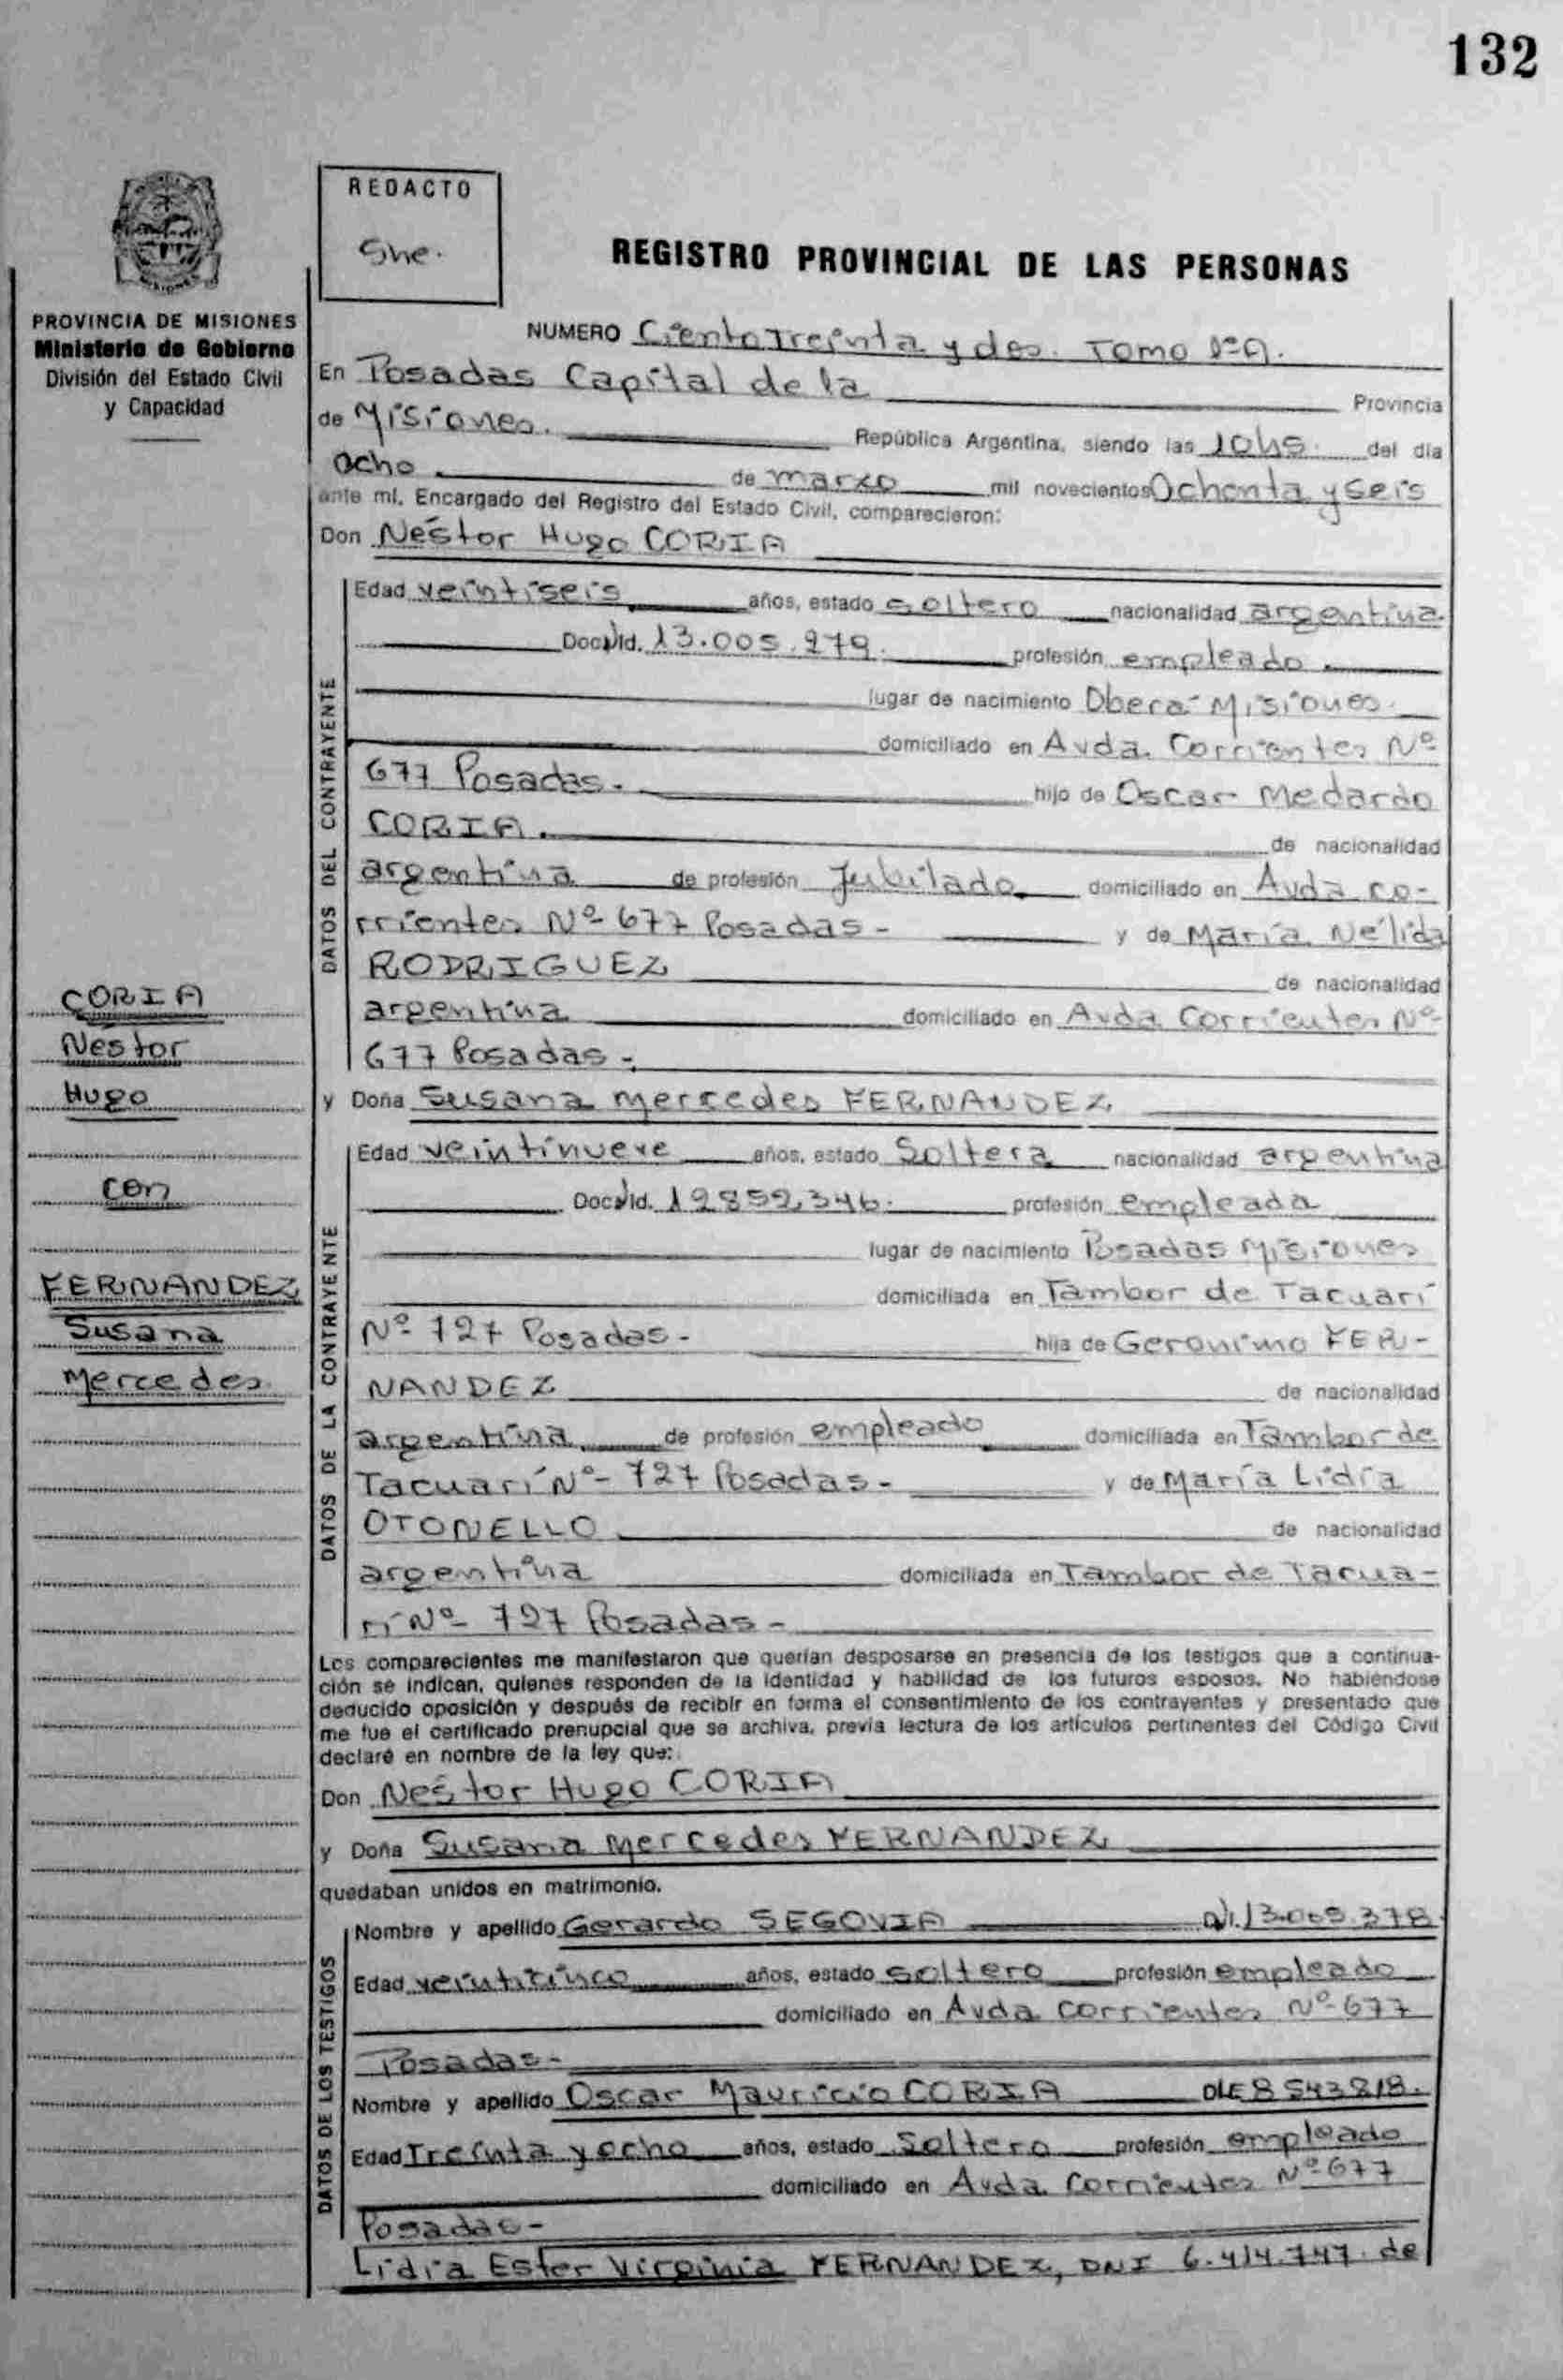 132
REDACTO
She.
REGISTRO PROVINCIAL DE LAS PERSONAS
PROVINCIA DE MISIONES
Ministerio de Gobierno
División del Estado Civil
y Capacidad
NUMERO Ciento Treinta y dos. Tomo
En Posadas Capital de la Provincia
de Misiones. República Argentina, siendo las 10hs. del día
Ocho de marzo mil novecientos Ochenta y seis
ante mí, Encargado del Registro del Estado Civil, comparecieron:
Don Néstor Hugo CORIA
DATOS DEL CONTRAYENTE
Edad veintiseis años, estado soltero nacionalidad argentina.
Doc. Id. 13.005.279. profesión empleado.
lugar de nacimiento Oberá Misiones.
domiciliado en Avda. Corrientes Nº
677 Posadas. hijo de Oscar Medardo
CORIA. de nacionalidad
argentina de profesión Jubilado. domiciliado en Avda co-
rrientes Nº 677 Posadas- y de María Nélida
RODRIGUEZ de nacionalidad
argentina domiciliado en Avda Corrientes Nº
677 Posadas-.
y Doña Susana Mercedes FERNANDEZ
DATOS DE LA CONTRAYENTE
Edad veintinueve años, estado Soltera nacionalidad argentina
Doc. Id. 12852.346. profesión empleada
lugar de nacimiento Posadas Misiones
domiciliada en Tambor de Tacuarí
Nº 727 Posadas- hija de Geronimo FER-
NANDEZ de nacionalidad
argentina de profesión empleado domiciliada en Tambor de
Tacuarí Nº 727 Posadas- y de María Lidia
OTONELLO de nacionalidad
argentina domiciliada en Tambor de Tacua-
rí Nº 727 Posadas-
Los comparecientes me manifestaron que querían desposarse en presencia de los testigos que a continua-
ción se indican, quienes responden de la identidad y habilidad de los futuros esposos. No habiéndose
deducido oposición y después de recibir en forma el consentimiento de los contrayentes y presentado que
me fue el certificado prenupcial que se archiva, previa lectura de los artículos pertinentes del Código Civil
declaré en nombre de la ley que:
Don Néstor Hugo CORIA
y Doña Susana Mercedes FERNANDEZ
quedaban unidos en matrimonio.
DATOS DE LOS TESTIGOS
Nombre y apellido Gerardo SEGOVIA
Edad veinticinco años, estado soltero profesión empleado
domiciliado en Avda Corrientes Nº 677
Posadas-
Nombre y apellido Oscar Mauricio CORIA DLE 8543818.
Edad Treinta y ocho años, estado Soltero profesión empleado
domiciliado en Avda Corrientes Nº 677
Posadas-
Lidia Ester Virginia FERNANDEZ, DNI 6.414.747 de
CORIA
Nestor
Hugo
con
FERNANDEZ
Susana
Mercedes